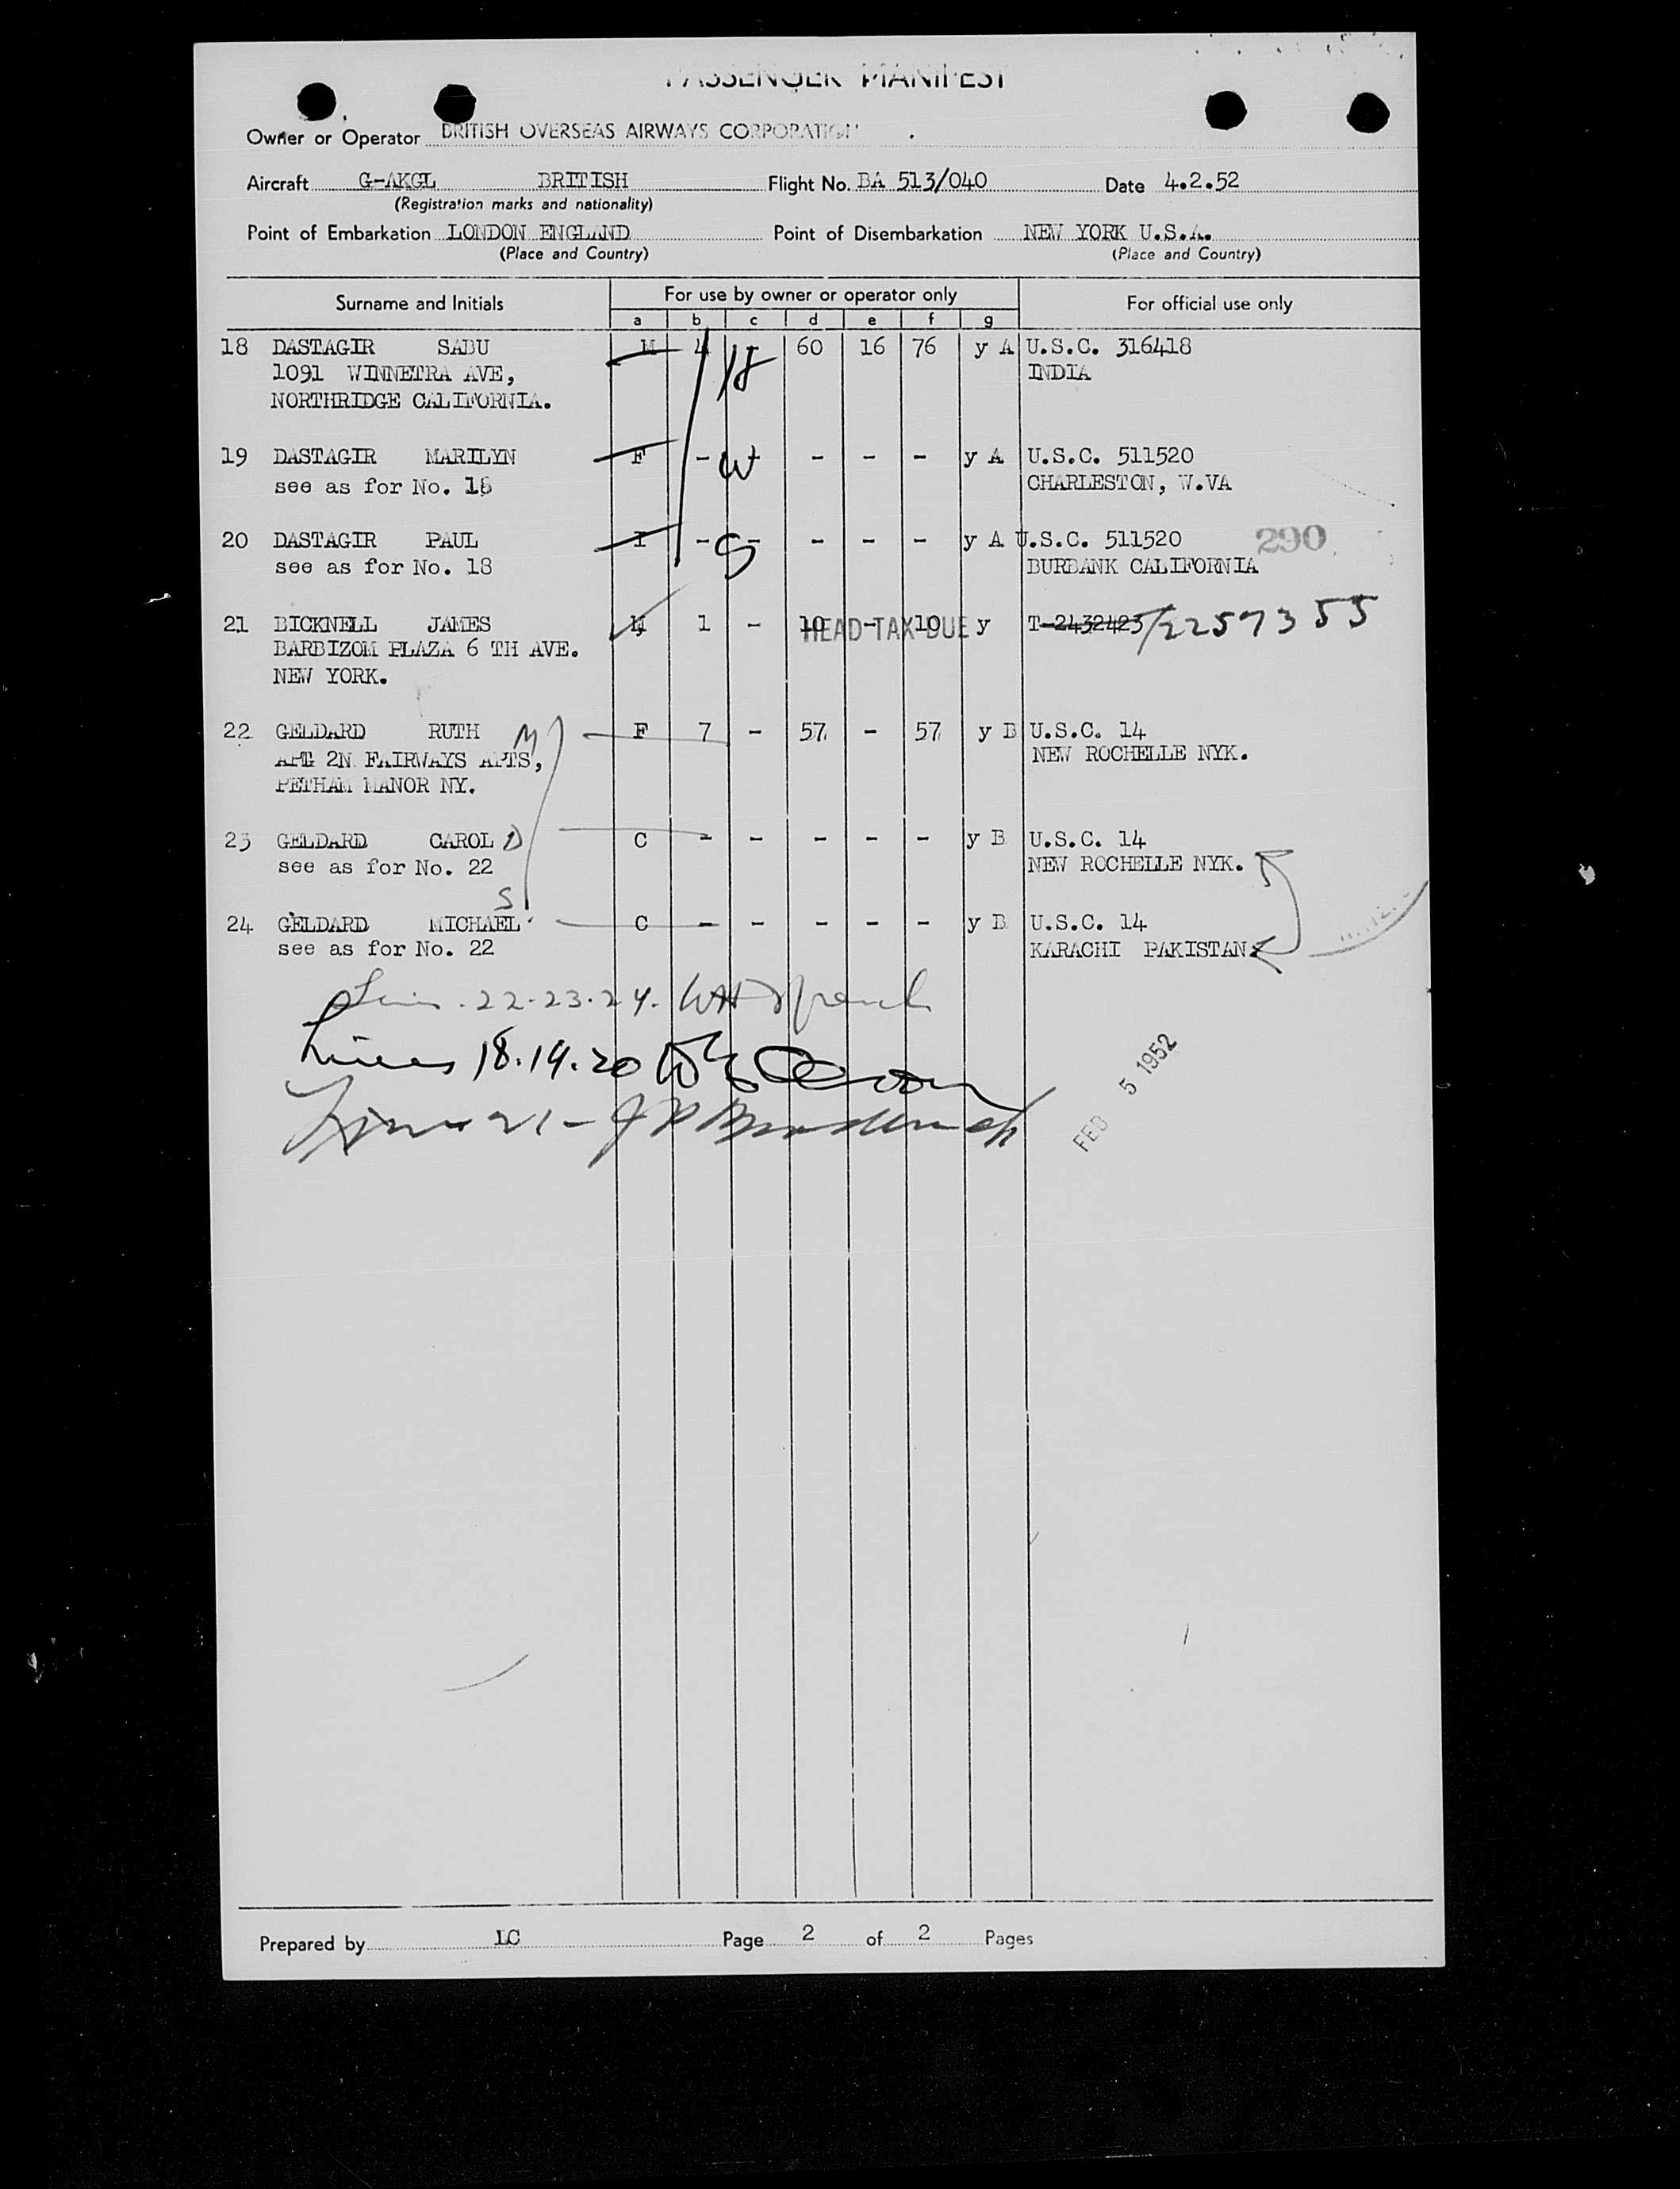 PASSENGER MANIFEST
Owner or Operator BRITISH OVERSEAS AIRWAYS CORPORATION
Aircraft G-AKGL BRITISH Flight No. BA 513/040 Date 4.2.52
(Registration marks and nationality)
Point of Embarkation LONDON ENGLAND Point of Disembarkation NEW YORK U.S.A.
(Place and Country) (Place and Country)
Surname and Initials For use by owner or operator only For official use only
a b c d e f g
18 DASTAGIR SABU M 4 - 60 16 76 y A U.S.C. 316418
1091 WINNETRA AVE, H INDIA
NORTHRIDGE CALIFORNIA.
19 DASTAGIR MARILYN F - W - - - y A U.S.C. 511520
see as for No. 18 CHARLESTON, W.VA
20 DASTAGIR PAUL I - - - - - y A U.S.C. 511520 290
see as for No. 18 S BURBANK CALIFORNIA
21 BICKNELL JAMES M 1 - 10 - 10 y T-2432423/2257355
HEAD-TAX-DUE
BARBIZOM PLAZA 6 TH AVE.
NEW YORK.
22 GELDARD RUTH M F 7 - 57 - 57 y B U.S.C. 14
APT 2N FAIRWAYS APTS, NEW ROCHELLE NYK.
PETHAM MANOR NY.
23 GELDARD CAROL D C - - - - - y B U.S.C. 14
see as for No. 22 NEW ROCHELLE NYK.
S
24 GELDARD MICHAEL C - - - - - y B U.S.C. 14
see as for No. 22 KARACHI PAKISTAN.
22-23-24.
Lines 18.19.20
21 -
FEB 5 1952
Prepared by LC Page 2 of 2 Pages